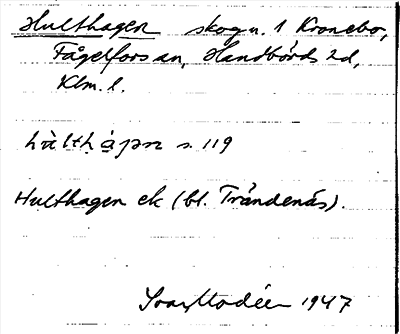 Hulthagen skogn. 1 Kronebo,
Fågelfors sn, Handbörds hd,
Klm. l.
s. 119
Hulthagen ek (bl. Trändenäs).
Ivar Modéer 1947